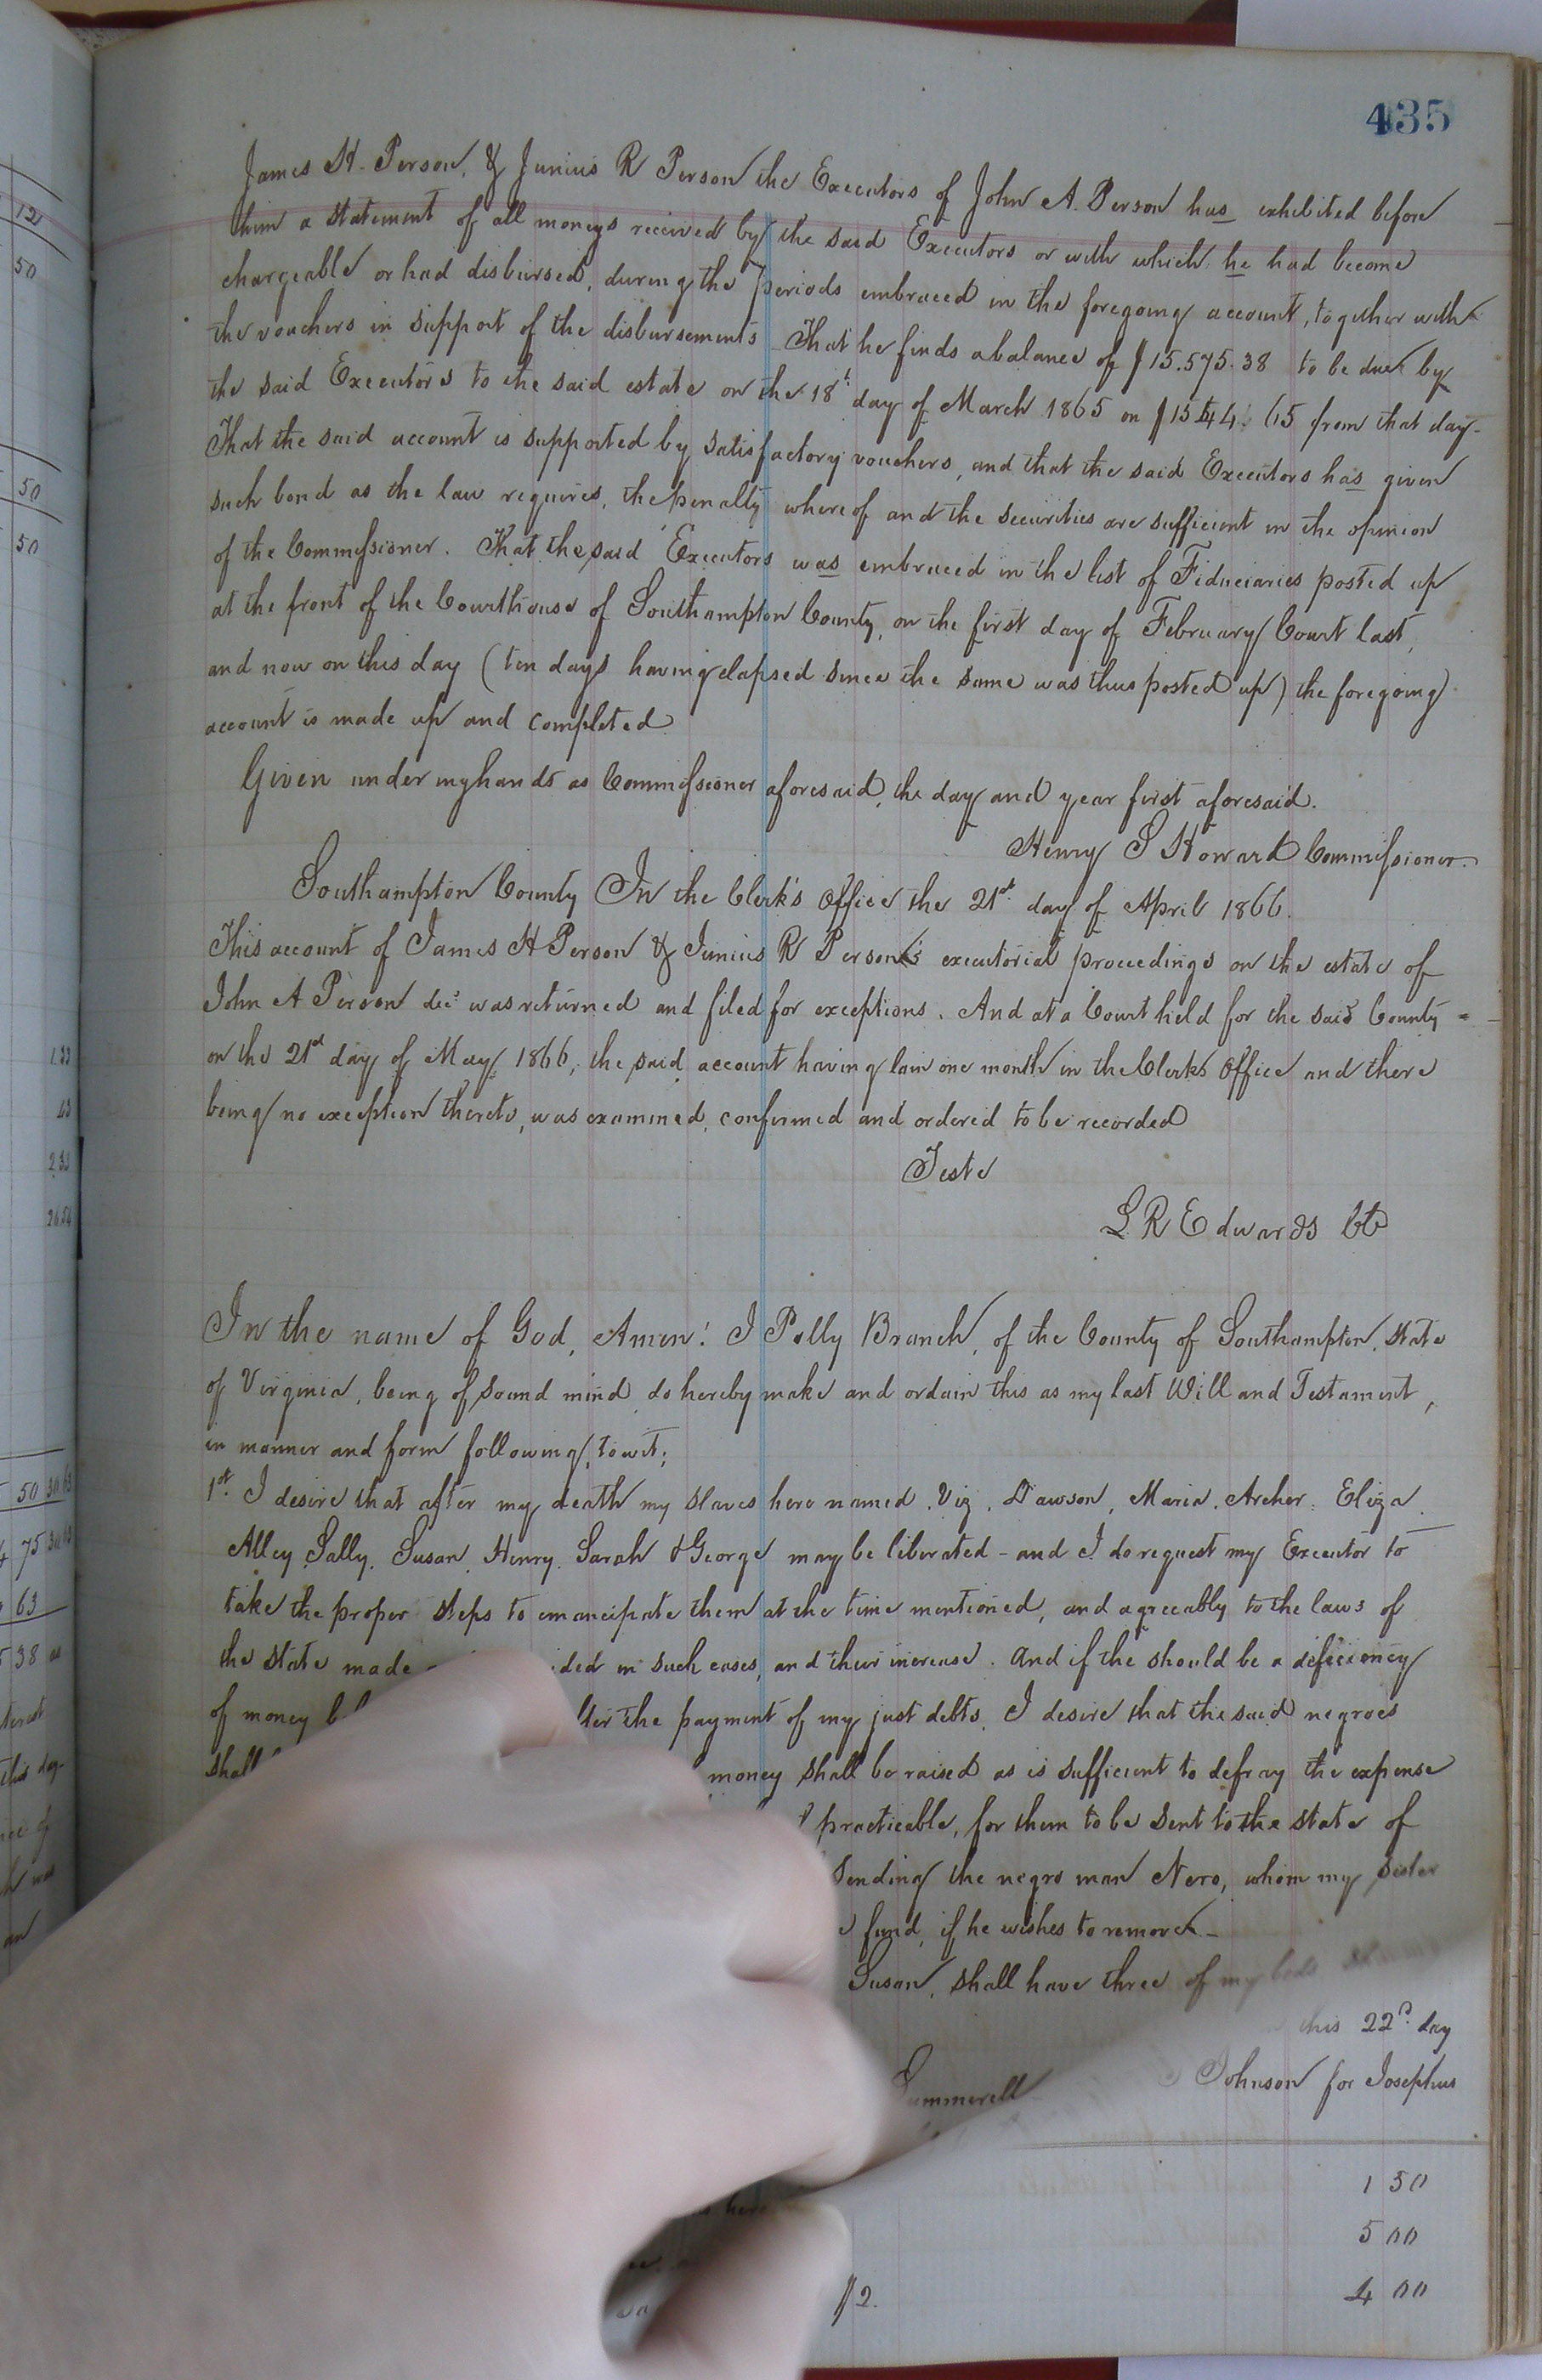 435
James H. Person, & Junius R Person the Executors of John A. Person has exhibited before
him a statement of all moneys received by the said Executors or with which he had become
chargeable or had disbursed, during the periods embraced in the foregoing account, together with
the vouchers in support of the disbursements - That he finds a balance of $15.575.38 to be due by
the said Executors to the said estate on the 18t day of March 1865 on from that day-
That the said account is supported by satisfactory vouchers, and that the said Executors has given
such bond as the law requires, the penalty whereof and the securities are sufficient in the opinion
of the Commissioner. That the said Executors was embraced in the list of Fiduciaries posted up
at the front of the Courthouse of Southampton County, on the first day of February Court last,
and now on this day (ten days having elapsed since the same was thus posted up) the foregoing
account is made up and completed
Given under my hands as Commissioner aforesaid, the day and year first aforesaid.
Henry S Howard Commissioner.
Southampton County In the Clerk's Office the 21st day of April 1866.
This account of James H Person & Junius R Person's executorial proceedings on the estate of
John A Person decd was returned and filed for exceptions. And at a Court held for the said County =
on the 21st day of May 1866, the said account having lain one month in the Clerks Office and there
being no exception thereto, was examined, confirmed and ordered to be recorded
Teste
L R Edwards Clk
In the name of God, Amen! I Polly Branch, of the County of Southampton, State
of Virginia, being of sound mind do hereby make and ordain this as my last Will and Testament,
in manner and form following, to wit;
1st. I desire that after my death my slaves here named. Viz. Dawson, Maria. Archer. Eliza.
Alley, Sally, Susan, Henry. Sarah & George may be liberated - and I do request my Executor to
take the proper steps to emancipate them at the time mentioned, and agreeably to the laws of
the state made in such cases, and their increase. And if the should be a deficiency
of money the payment of my just debts, I desire that the said negroes
shall money shall be raised as is sufficient to defray the expense
practicable, for them to be sent to the state of
sending the negro man Nero, whom my sister
fund, if he wishes to remove -
Susan, shall have three of my beds
this 22d. day
Summerell Johnson for Josephus
1 50
5 00
$2. 4 00
12
50
50
50
1.33
2.33
50
75
63
38
this day-